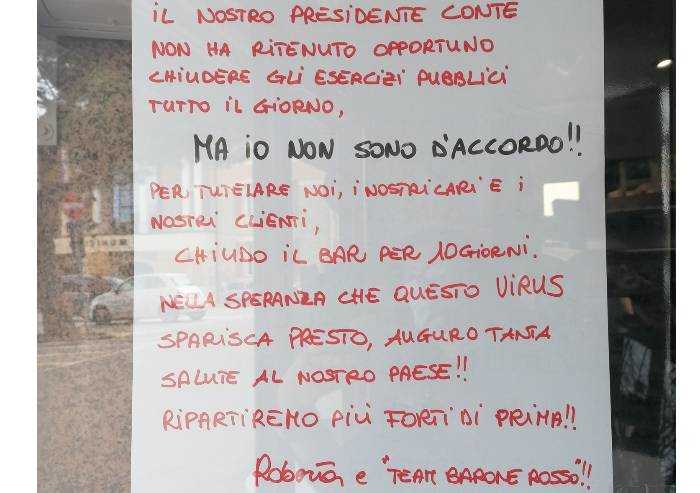 IL NOSTRO PRESIDENTE CONTE
NON HA RITENUTO OPPORTUNO
CHIUDERE GLI ESERCIZI PUBBLICI
TUTTO IL GIORNO,
MA IO NON SONO D'ACCORDO!!
PER TUTELARE NOI, I NOSTRI CARI E I
NOSTRI CLIENTI,
CHIUDO IL BAR PER 10 GIORNI.
NELLA SPERANZA CHE QUESTO VIRUS
SPARISCA PRESTO, AUGURO TANTA
SALUTE AL NOSTRO PAESE!!
RIPARTIREMO PIÙ FORTI DI PRIMA!!
e "TEAM BARONE ROSSO"!!